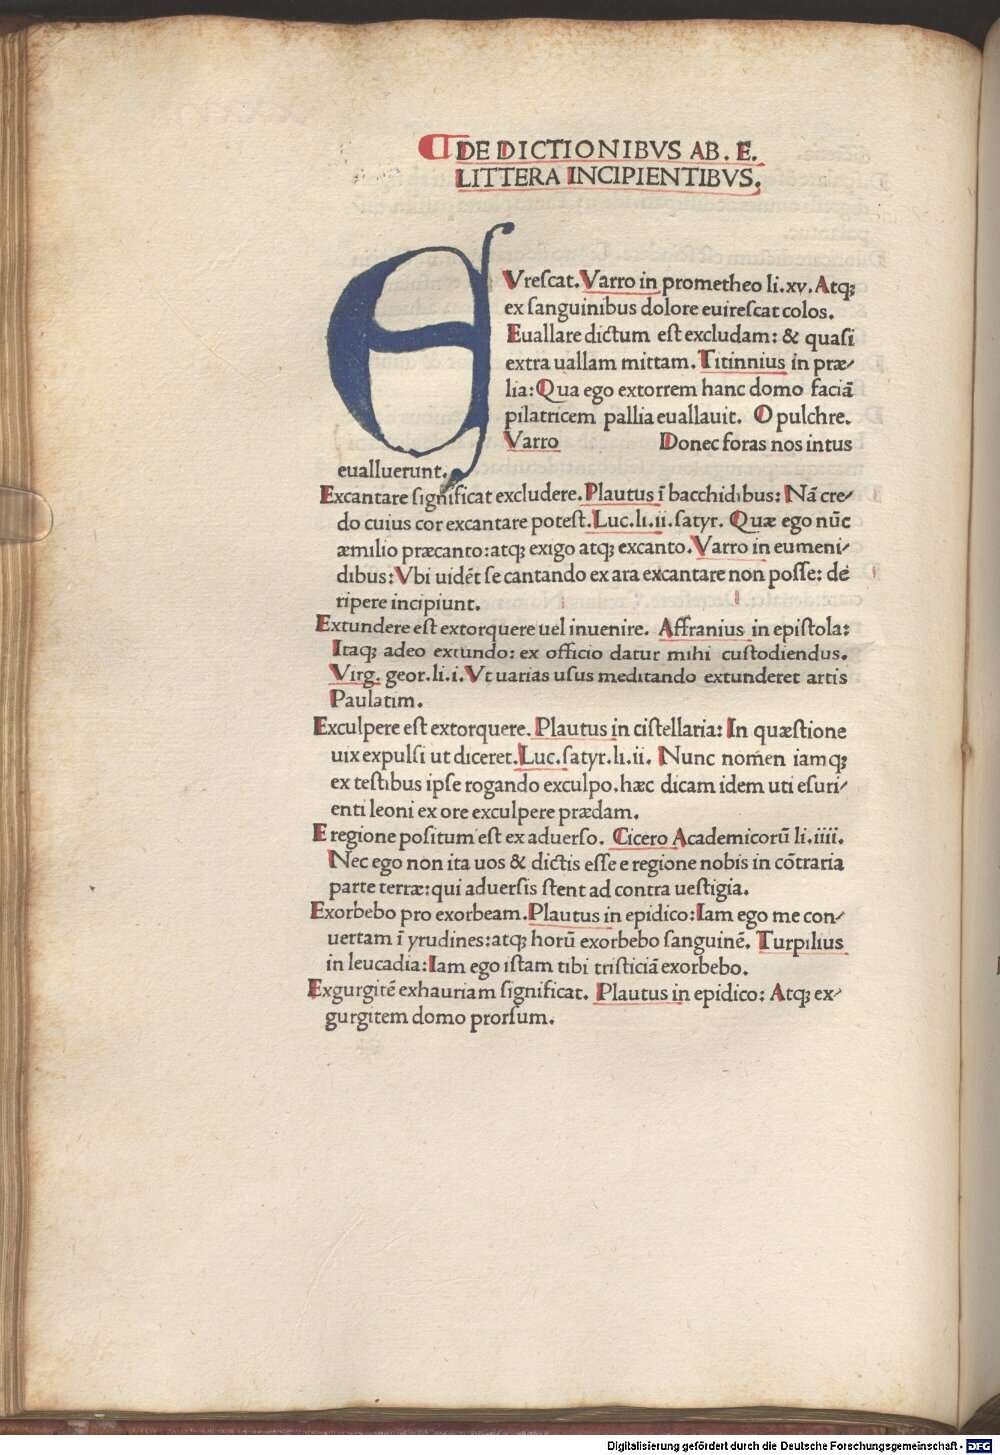 DE DICTIONIBVS AB. E.
LITTERA INCIPIENTIBVS.
EVreſcat. Varro in prometheo li.xv. Atqꝫ
ex ſanguinibus dolore euireſcat colos.
Euallare dictum eſt excludam: & quaſi
extra uallam mittam. Titinnius in præ⸗
lia: Qua ego extorrem hanc domo faciā
pilatricem pallia euallauit. O pulchre.
Varro Donec foras nos intus
eualluerunt.
Excantare ſignificat excludere. Plautus ī bacchidibus: Nā cre⸗
do cuius cor excantare poteſt. Luc.li.ii.ſatyr. Quæ ego nūc
æmilio præcanto: atqꝫ exigo atqꝫ excanto. Varro in eumeni⸗
dibus: Vbi uidēt ſe cantando ex ara excantare non poſſe: de
ripere incipiunt.
Extundere eſt extorquere uel inuenire. Affranius in epiſtola:
Itaqꝫ adeo extundo: ex officio datur mihi cuſtodiendus.
Virg. geor.li.i. Vt uarias uſus meditando extunderet artis
Paulatim.
Exculpere eſt extorquere. Plautus in ciſtellaria: In quæſtione
uix expulſi ut diceret. Luc.ſatyr.li.ii. Nunc nomen iamqꝫ
ex teſtibus ipſe rogando exculpo.hæc dicam idem uti eſuri⸗
enti leoni ex ore exculpere prædam.
E regione poſitum eſt ex aduerſo. Cicero Academicorū li.iiii.
Nec ego non ita uos & dictis eſſe e regione nobis in cōtraria
parte terræ: qui aduerſis ſtent ad contra ueſtigia.
Exorbebo pro exorbeam. Plautus in epidico: Iam ego me con⸗
uertam ī yrudines: atqꝫ horū exorbebo ſanguinē. Turpilius
in leucadia: Iam ego iſtam tibi triſticiā exorbebo.
Exgurgitē exhauriam ſignificat. Plautus in epidico: Atqꝫ ex⸗
gurgitem domo prorſum.
Digitalisierung gefördert durch die Deutsche Forschungsgemeinschaft - DFG